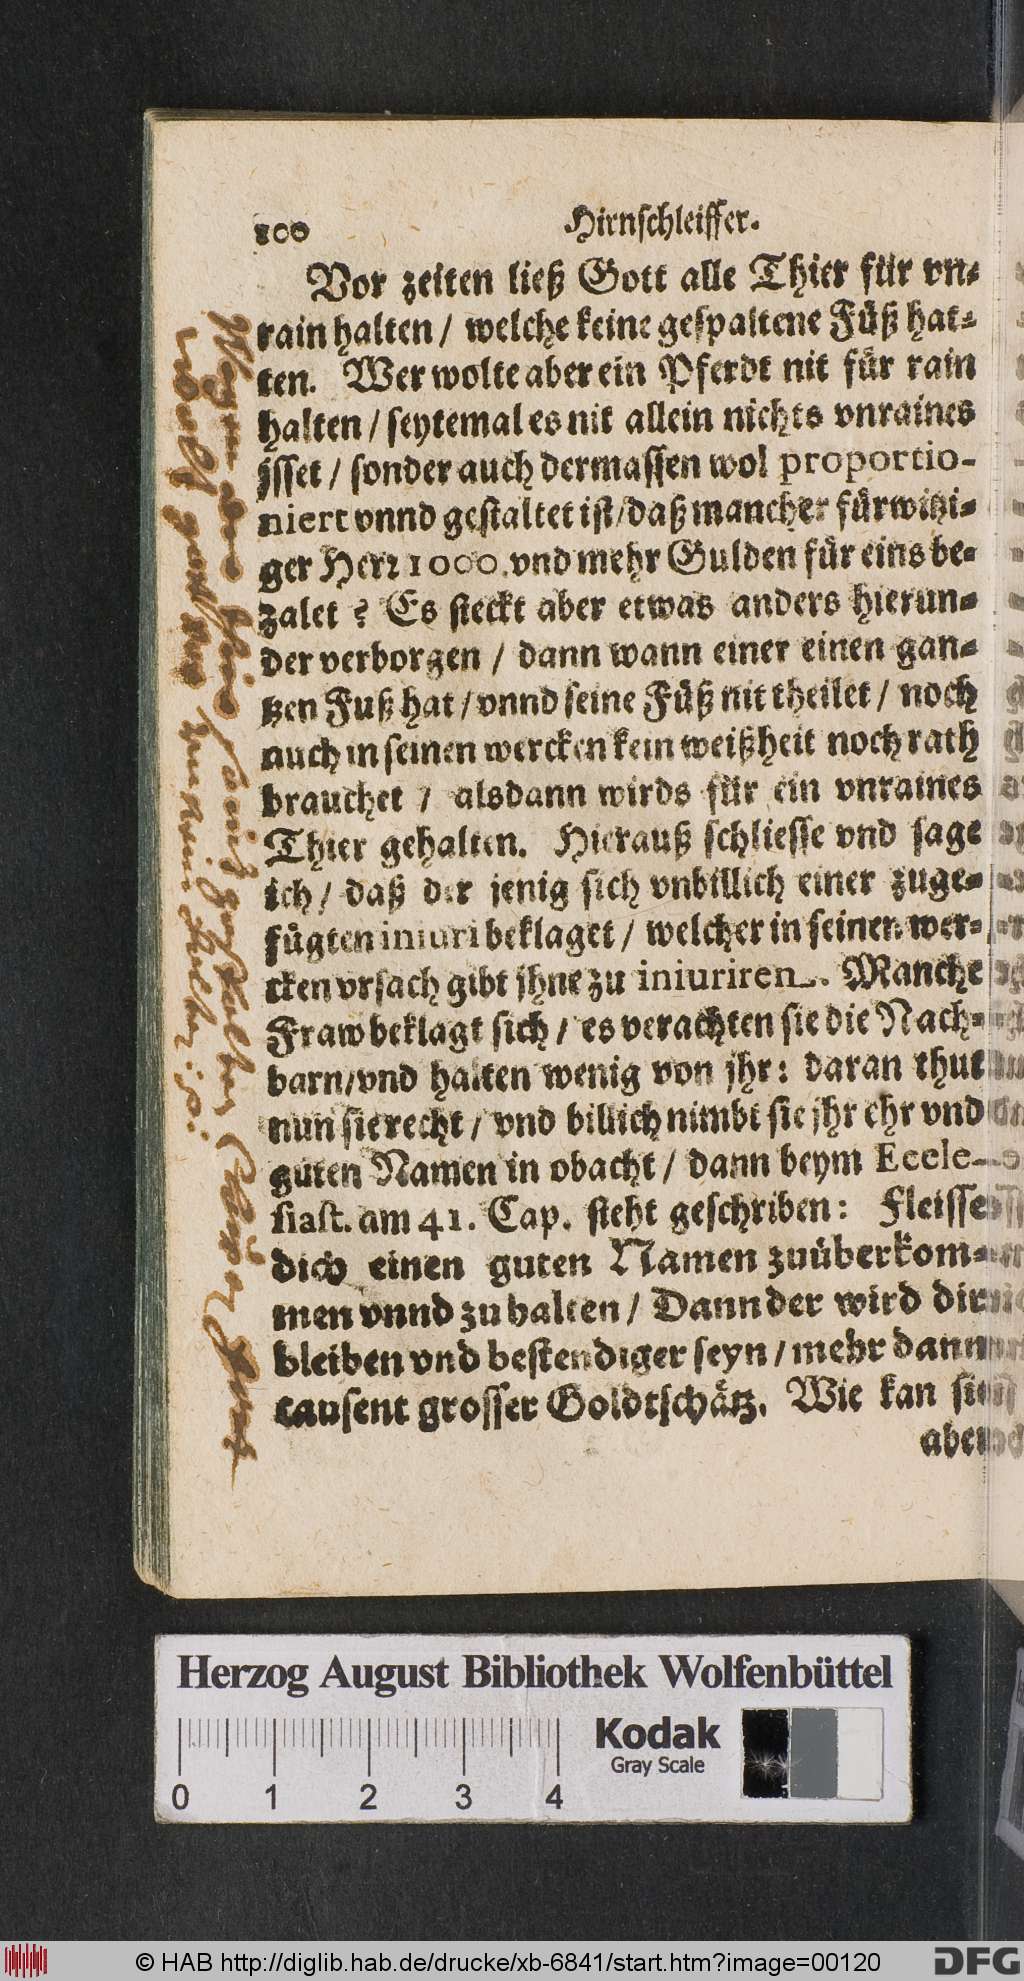 100 Hirnschleiffer.
Vor zeiten ließ Gott alle Thier für vn-
rain halten / welche keine gespaltene Füß hat-
ten. Wer wolte aber ein Pferdt nit für rain
halten / seytemal es nit allein nichts vnraines
jsset / sonder auch dermassen wol proportio-
niert vnnd gestaltet ist / daß mancher fürwitzi-
ger Herr 1000. vnd mehr Gulden für eins be-
zalet ? Es steckt aber etwas anders hierun-
der verborgen / dann wann einer einen gan-
tzen Fuß hat / vnnd seine Füß nit theilet / noch
auch in seinen wercken kein weißheit noch rath
brauchet / alsdann wirds für ein vnraines
Thier gehalten. Hierauß schliesse vnd sage
ich / daß der jenig sich vnbillich einer zuge-
fügten iniuri beklaget / welcher in seinen wer-
cken vrsach gibt jhne zu iniuriren. Manche
Fraw beklagt sich / es verachten sie die Nach-
barn / vnd halten wenig von jhr : daran thut
nun sie recht / vnd billich nimbt sie jhr ehr vnd
guten Namen in obacht / dann beym Eccle-
siast. am 41. Cap. steht geschriben : Fleisse
dich einen guten Namen zuüberkom-
men vnnd zu halten / Dann der wird dir
bleiben vnd bestendiger seyn / mehr dann
tausent grosser Goldtschätz. Wie kan sie
aber
Herzog August Bibliothek Wolfenbüttel
Kodak
Gray Scale
0 1 2 3 4
© HAB http://diglib.hab.de/drucke/xb-6841/start.htm?image=00120
DFG